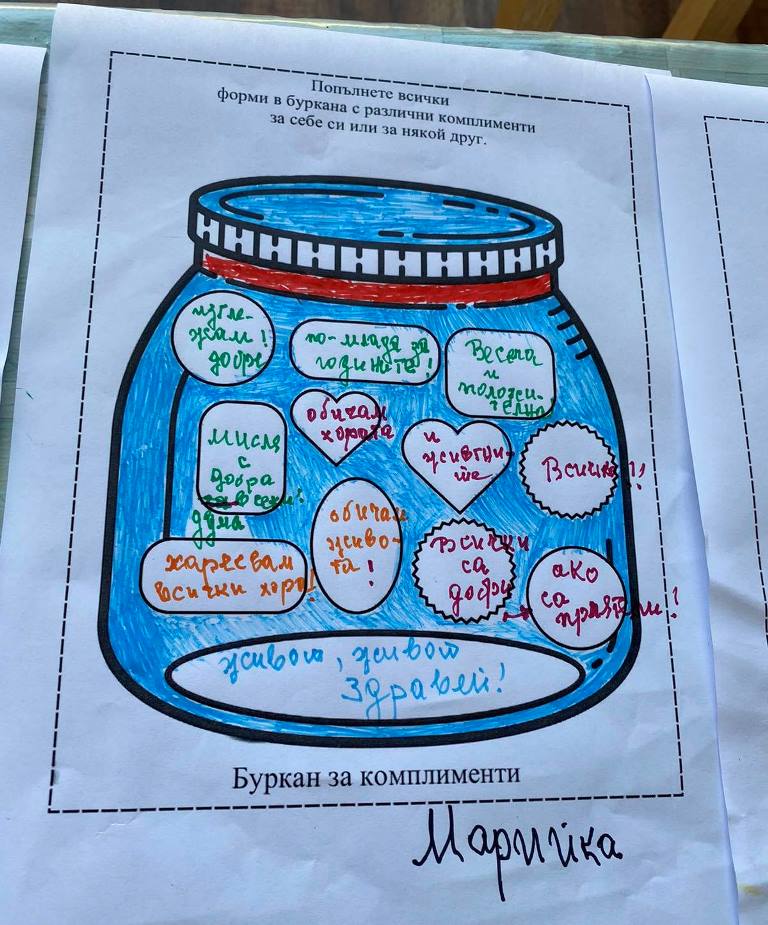 Попълнете всички
форми в буркана с различни комплименти
за себе си или за някой друг.
изгле-
ждам!
добре
по-млада за
годините!
Весела
и
положи-
телна
Мисля
с
добра
за всеки!
дума
обичам
хората
и
животни-
те
Всичко!!
харесвам
всички хора!
обичам
живо-
та!
Всички
са
добри
ако
са
приятели!
живот, живот
здравей!
Буркан за комплименти
Марийка